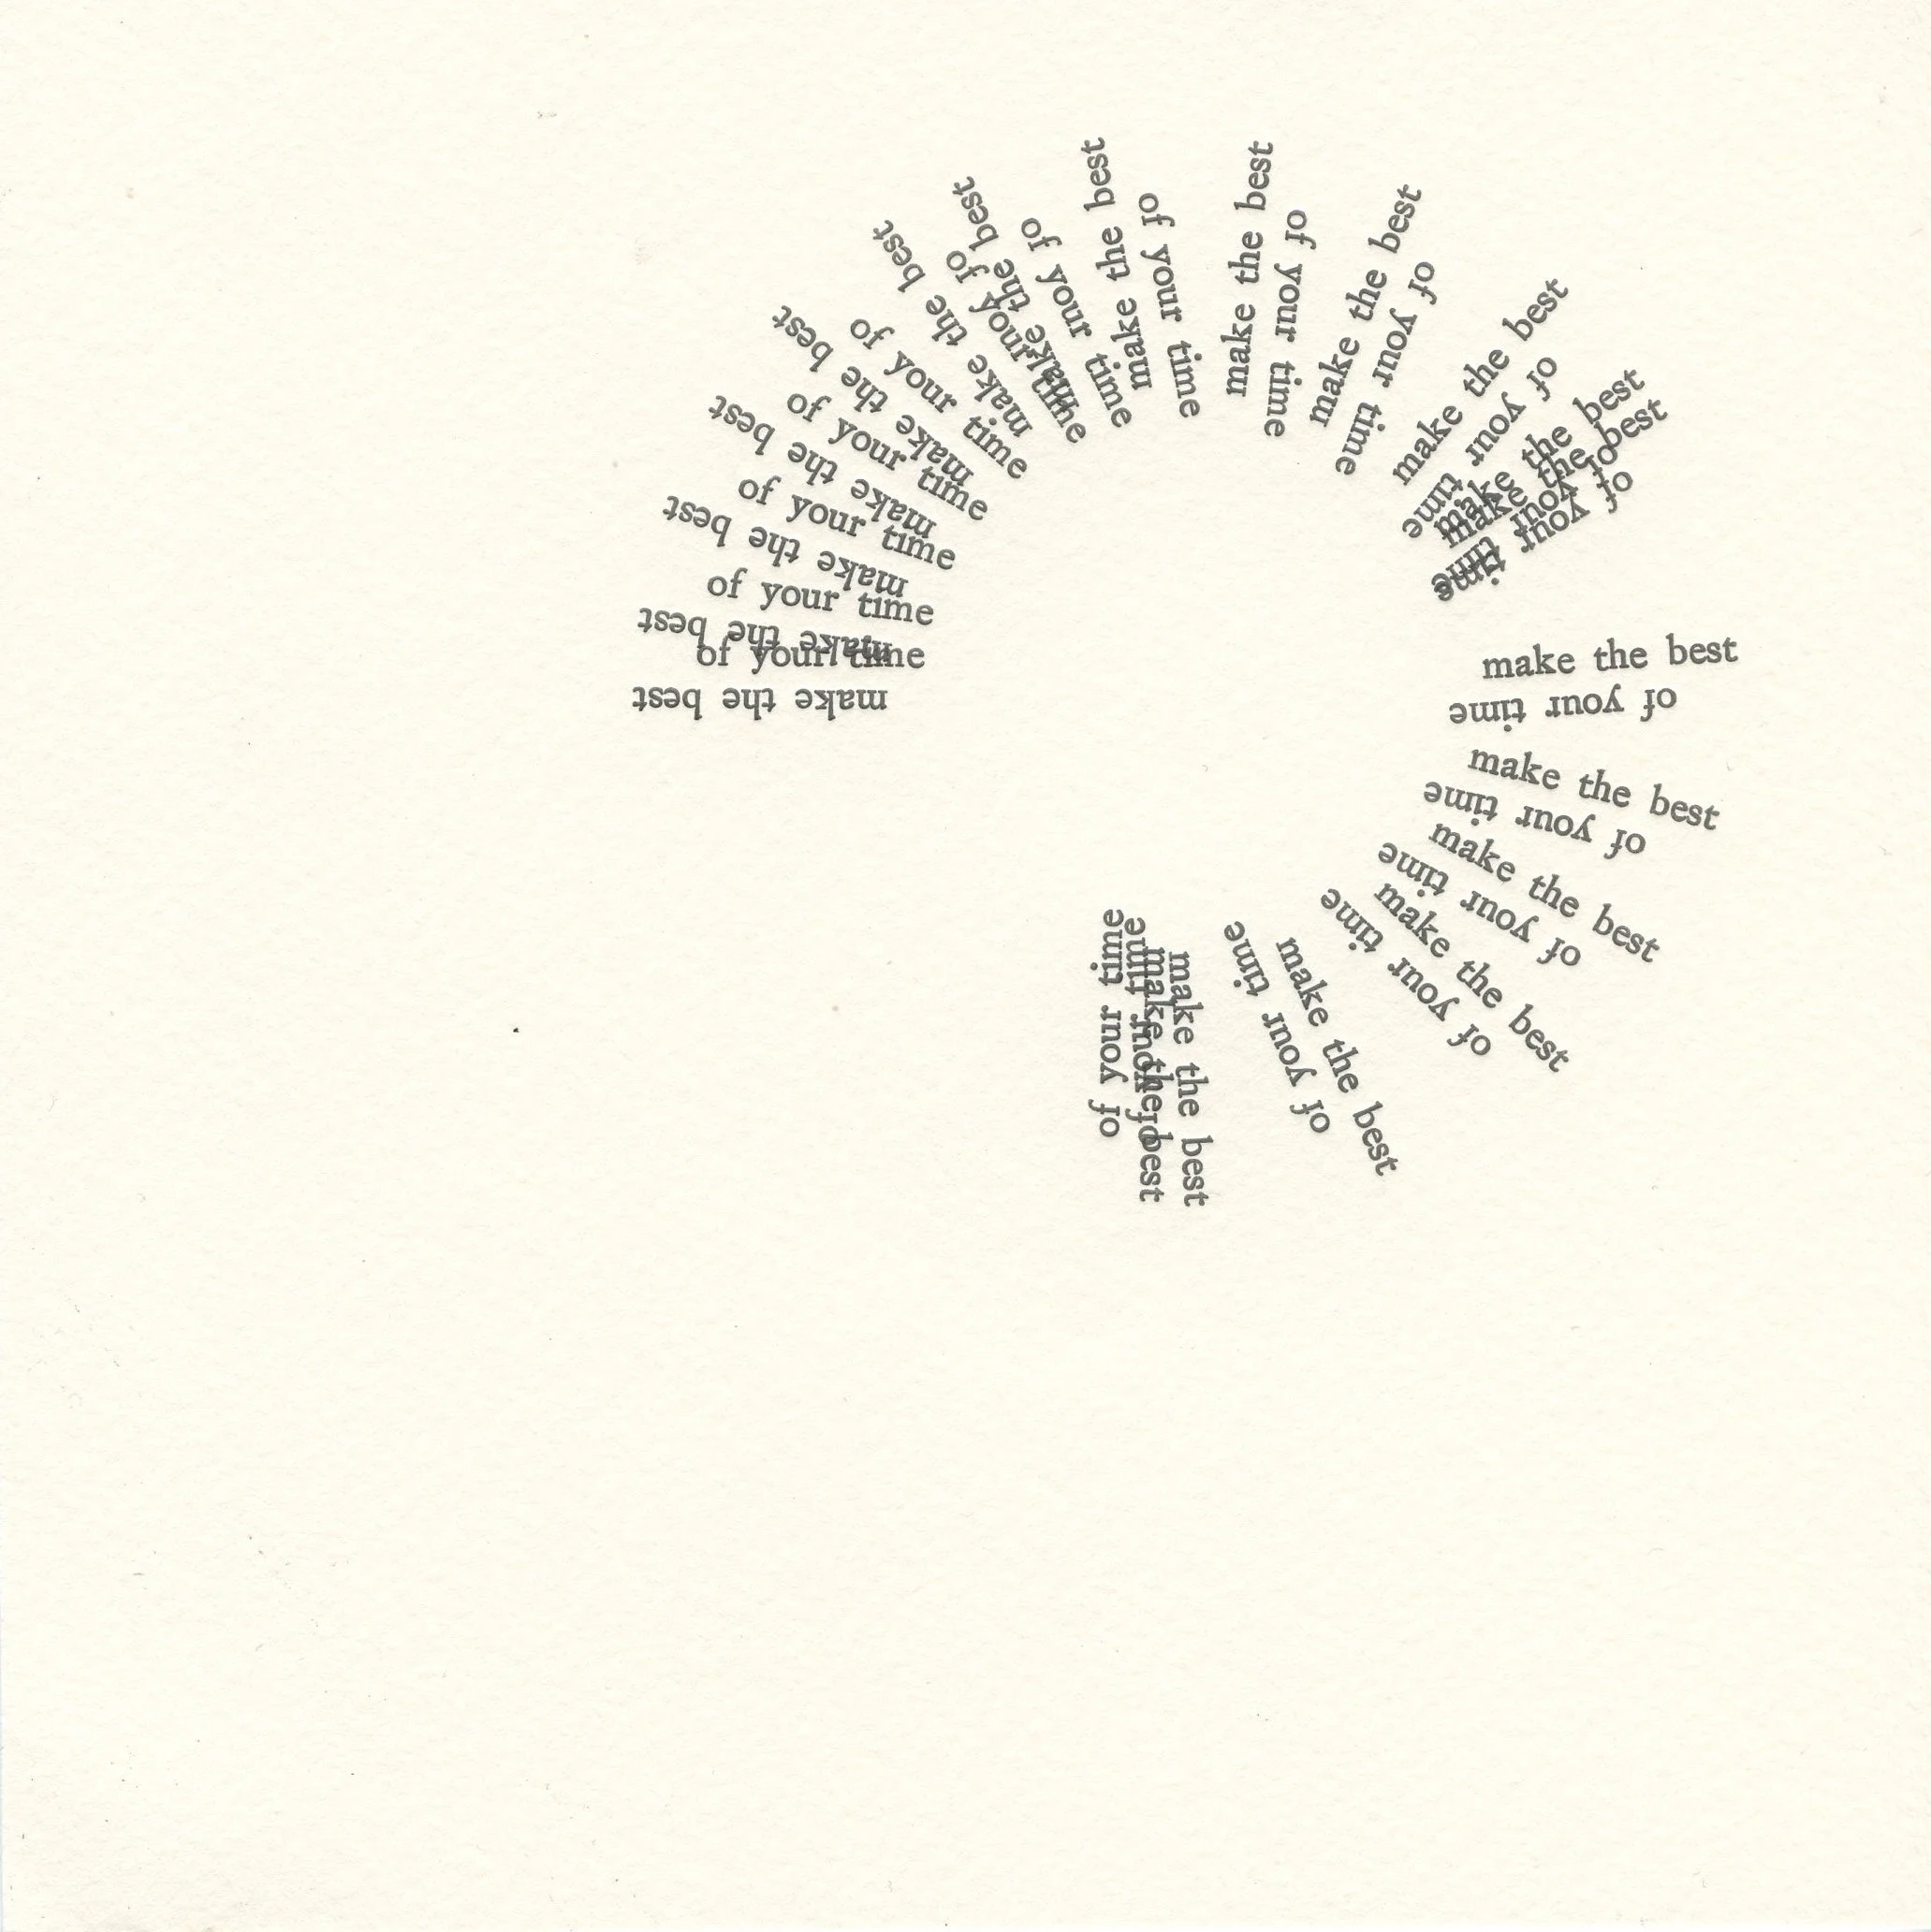 make the best
of your time
make the best
of your time
make the best
of your time
make the best
of your time
make the best
of your time
make the best
of your time
make the best
of your time
make the best
of your time
make the best
of your time
make the best
of your time
make the best
of your time
make the best
of your time
make the best
of your time
make the best
of your time
make the best
of your time
make the best
of your time
make the best
of your time
make the best
of your time
make the best
of your time
make the best
of your time